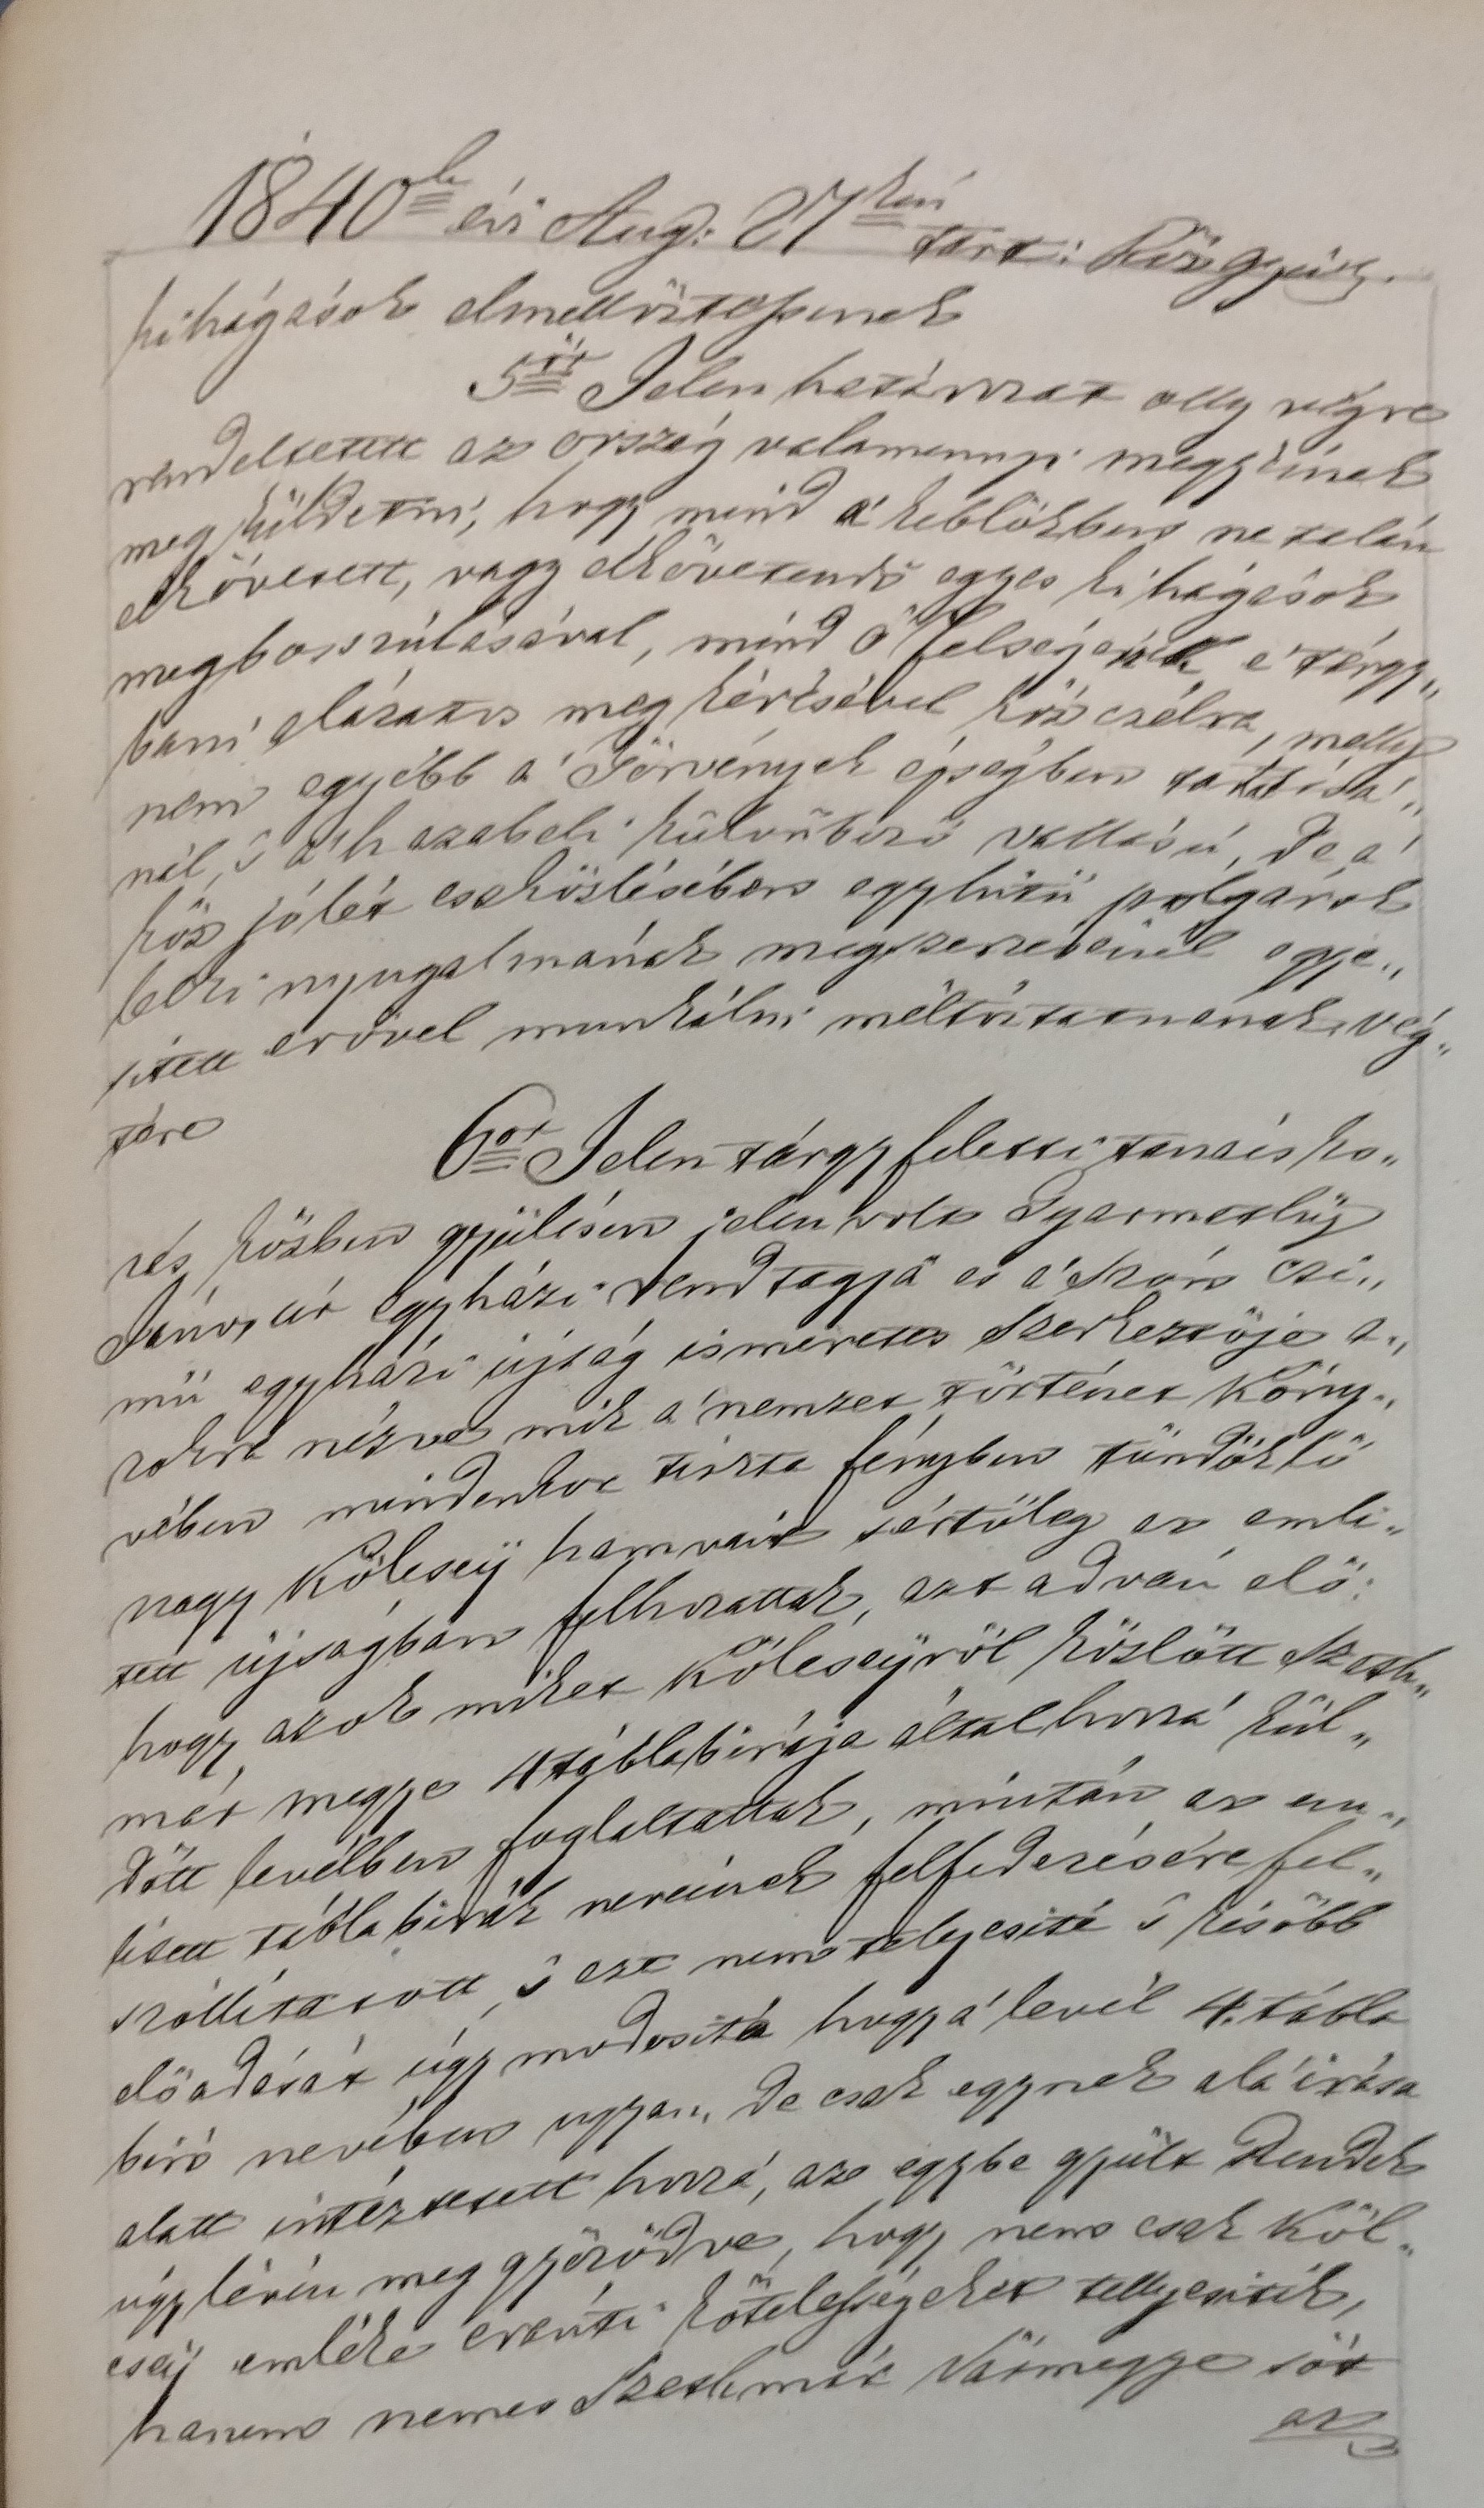 1840ik évi Aug: 27kén tart: Közgyűl.
kihágások elmellőztessenek
5ör Jelen határozat olly végre
rendeltetett az ország valamennyi megyéinek
meg küldetni, hogy mind a' keblökben netalán
elkövetett, vagy elkövetendő egyes kihágások
megboszúlásával, mind ő felségének e' tárgy„
bani alázatos meg kérésével köz czélra, melly
nem egyébb a' Törvények épségben tartásá„
nál, s a' hazabeli külömböző vallású, de a'
köz jólét eszközlésében egyhitü polgárok
lelki nyugalmának megszerzésénél egye„
sített erővel munkálni méltóztatnának, vég„
tére
6or Jelen tárgy feletti tanácsko„
zás közben gyülésen jelen volt Gyarmathÿ
János úr egyházi rend tagja és a' Szion czi„
mü egyházi újság ismeretes Szerkeztője a„
zokra nézve mik a' nemzet történet Köny„
vében mindenkor tiszta fényben tündöklő
nagy Kölcseÿ hamvait sértőleg az emli„
tett újságban felhozattak, azt adván elő:
hogy azok miket Kölcseÿről közlött Szath„
már megye 4 táblabirája által hozzá kül„
dött levélben foglaltattak, miután az em„
lített táblabirák neveinek felfedezésére fel„
szóllíttatott, s ezt nem teljesité s később
előadását úgy modosítá hogy a' levél 4. tábla
biró nevében ugyan, de csak egynek alá irása
alatt intéztetett hozzá, az egybe gyült Rendek
úgy lévén meg győződve, hogy nem csak Köl„
cseÿ emléke eránti kötelességeket tellyesitik,
hanem nemes Szathmár Vármegye sőt
az